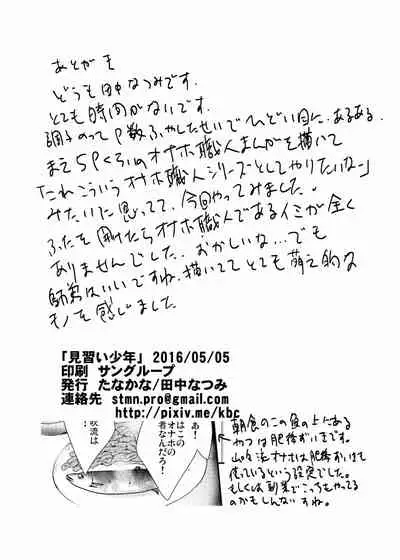 あとがき
どうも田中なつみです。
とても時間がないです。
調子のってP数ふやしたせいでひどい目に。あるある。
まえ5Pくらいのオナホ職人まんがを描いて
「これこういうオナホ職人シリーズとしてやりたいな〜」
みたいに思ってて、今回やってみました。
ふたを開けたらオナホ職人であるイミが全く
ありませんでした。おかしいな…でも
師弟はいいですね。描いててとても萌え的な
モノを感じました。
「見習い少年」 2016/05/05
印刷 サングループ
発行 たなかな/田中なつみ
連絡先 stmn.pro@gmail.com
http://pixiv.me/kbc
あ!
はこの
オナホの
者なんだろ!
吹流は
朝食のこの魚の上にある
やつは肥後ずいきです。
オナホは肥後ずいきで
使っているという設定でした。
もしくは副業でこっちもやってる
のかもしんないすね。